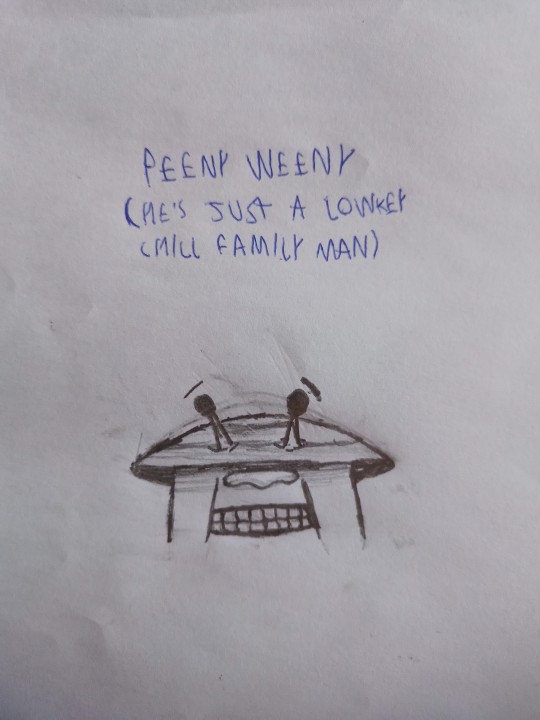 PEENY WEENY
(HE'S JUST A LOWKEY
CHILL FAMILY MAN)